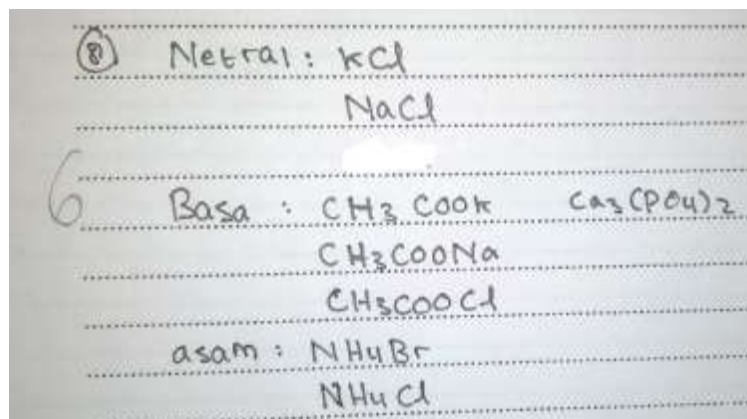 8 Netral : KCl
NaCl
6
Basa : CH3COOK Ca3(PO4)2
CH3COONa
CH3COOCl
asam : NH4Br
NH4Cl